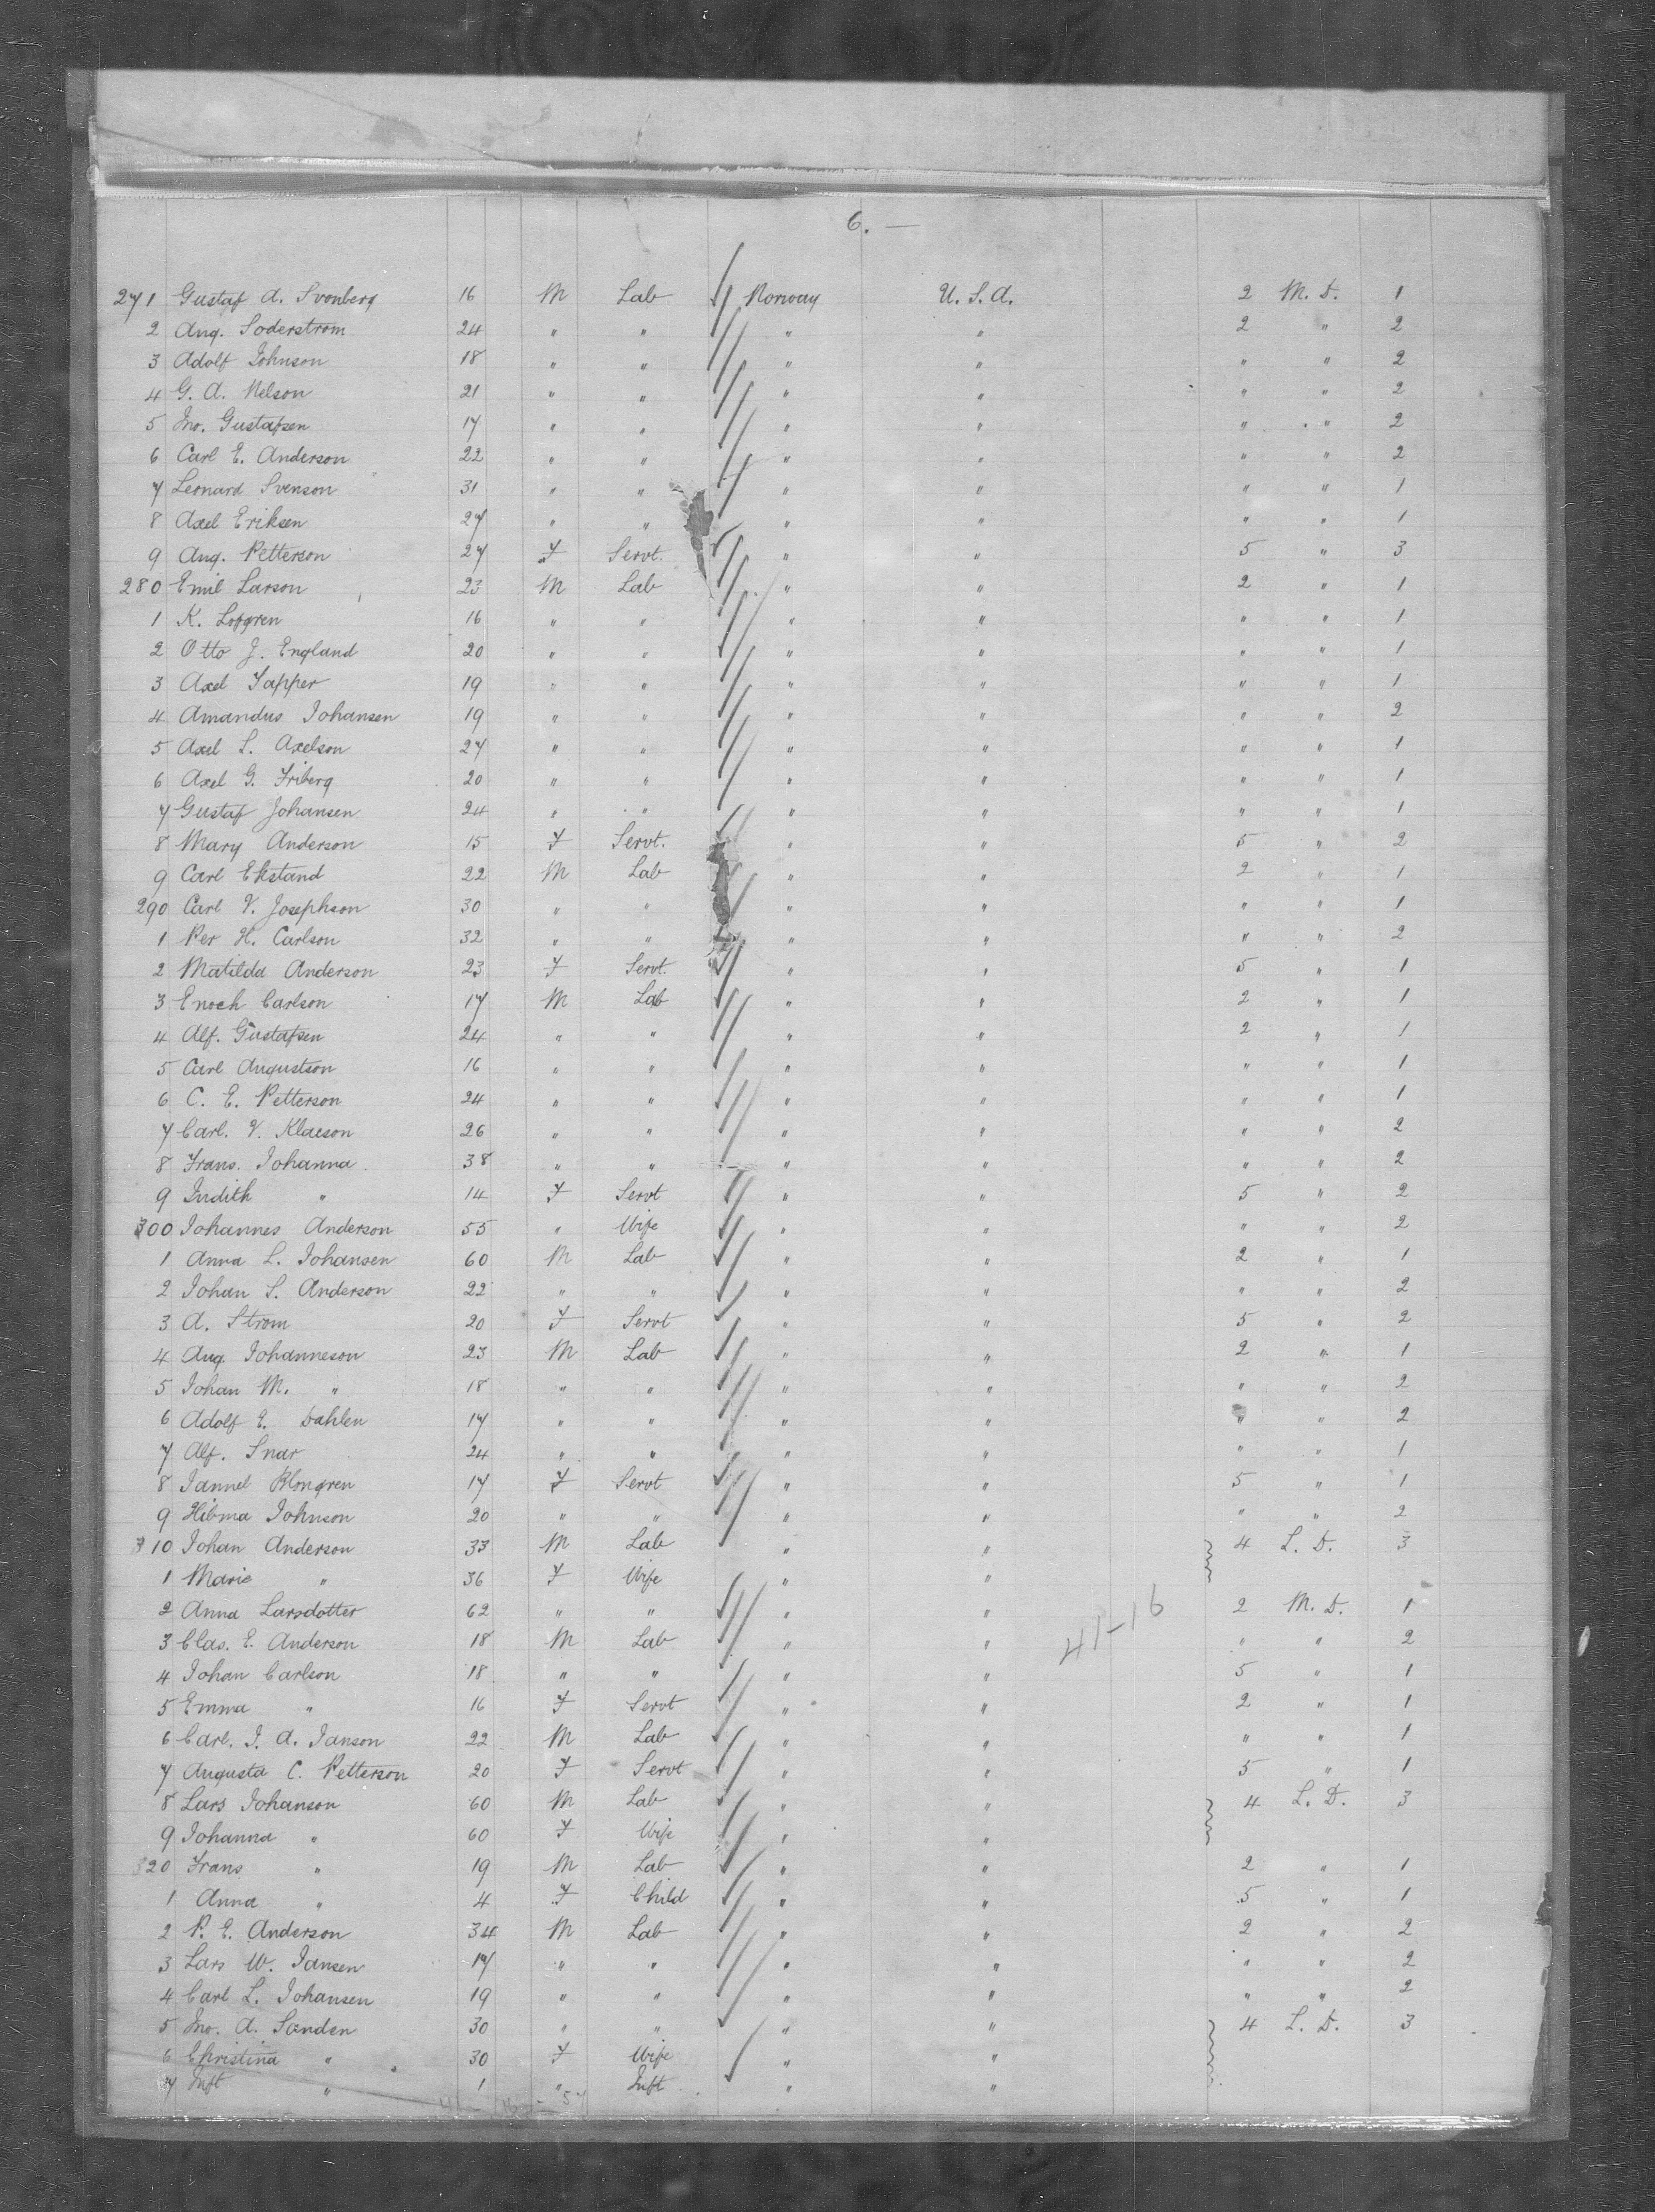 6. —
271 Gustaf A. Svenberg 16 M Lab Norway U. S. A. 2 M. D. 1
2 Aug. Soderstrom 24 " " " " 2 " 2
3 Adolf Johnson 18 " " " " " " 2
4 G. A. Nelson 21 " " " " " " 2
5 Jno. Gustafsen 17 " " " " " " 2
6 Carl E. Anderson 22 " " " " " " 2
7 Leonard Svenson 31 " " " " " " 1
8 Axel Eriksen 27 " " " " " " 1
9 Aug. Petterson 27 F Servt. " " 5 " 3
280 Emil Larson 23 M Lab " " 2 " 1
1 K. Lofgren 16 " " " " " " 1
2 Otto J. England 20 " " " " " " 1
3 Axel Tapper 19 " " " " " " 1
4 Amandus Johansen 19 " " " " " " 2
5 Axel S. Axelson 27 " " " " " " 1
6 Axel G. Friberg 20 " " " " " " 1
7 Gustaf Johansen 24 " " " " " " 1
8 Mary Anderson 15 F Servt. " " 5 " 2
9 Carl Ekstand 22 M Lab " " 2 " 1
290 Carl V. Josephson 30 " " " " " " 1
1 Per H. Carlson 32 " " " " " " 2
2 Matilda Anderson 23 F Servt. " " 5 " 1
3 Enoch Carlson 17 M Lab " " 2 " 1
4 Alf. Gustafsen 24 " " " " 2 " 1
5 Carl Augustson 16 " " " " " " 1
6 C. E. Petterson 24 " " " " " " 1
7 Carl. V. Klaeson 26 " " " " " " 2
8 Frans. Johanna 38 " " " " " " 2
9 Judith " 14 F Servt " " 5 " 2
300 Johannes Anderson 55 " Wife " " " " 2
1 Anna L. Johansen 60 M Lab " " 2 " 1
2 Johan S. Anderson 22 " " " " " " 2
3 A. Strom 20 F Servt " " 5 " 2
4 Aug. Johanneson 23 M Lab " " 2 " 1
5 Johan M. " 18 " " " " " " 2
6 Adolf E. Dahlen 17 " " " " " " 2
7 Alf. Snar 24 " " " " " " 1
8 Jannel Blongren 17 F Servt " " 5 " 1
9 Hibma Johnson 20 " " " " " " 2
310 Johan Anderson 33 M Lab " " 4 L. D. 3
1 Marie " 36 F Wife " "
2 Anna Larsdotter 62 " " " " 2 M. D. 1
41-16
3 Clas. E. Anderson 18 M Lab " " " " 2
4 Johan Carlson 18 " " " " 5 " 1
5 Emma " 16 F Servt " " 2 " 1
6 Carl. J. A. Janson 22 M Lab " " " " 1
7 Augusta C. Petterson 20 F Servt " " 5 " 1
8 Lars Johanson 60 M Lab " " 4 L. D. 3
9 Johanna " 60 F Wife " "
320 Frans " 19 M Lab " " 2 " 1
1 Anna " 4 F Child " " 5 " 1
2 P. E. Anderson 34 M Lab " " 2 " 2
3 Lars W. Jansen 17 " " " " " " 2
4 Carl L. Johansen 19 " " " " " " 2
5 Jno. A. Sanden 30 " " " " 4 L. D. 3
6 Christina " 30 F Wife " "
7 Inft " 1 " Inft " "